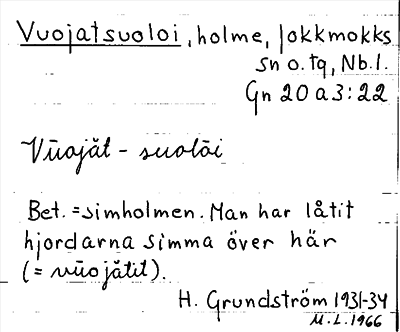 Vuojatsuoloi, holme, Jokkmokks
sn o. tq, Nb. l.
Gn 20 a 3:22
Vūojăt - suolōi
Bet. = simholmen. Man har låtit
hjordarna simma över här
(= vūojătit).
H. Grundström 1931-34
M.L. 1966